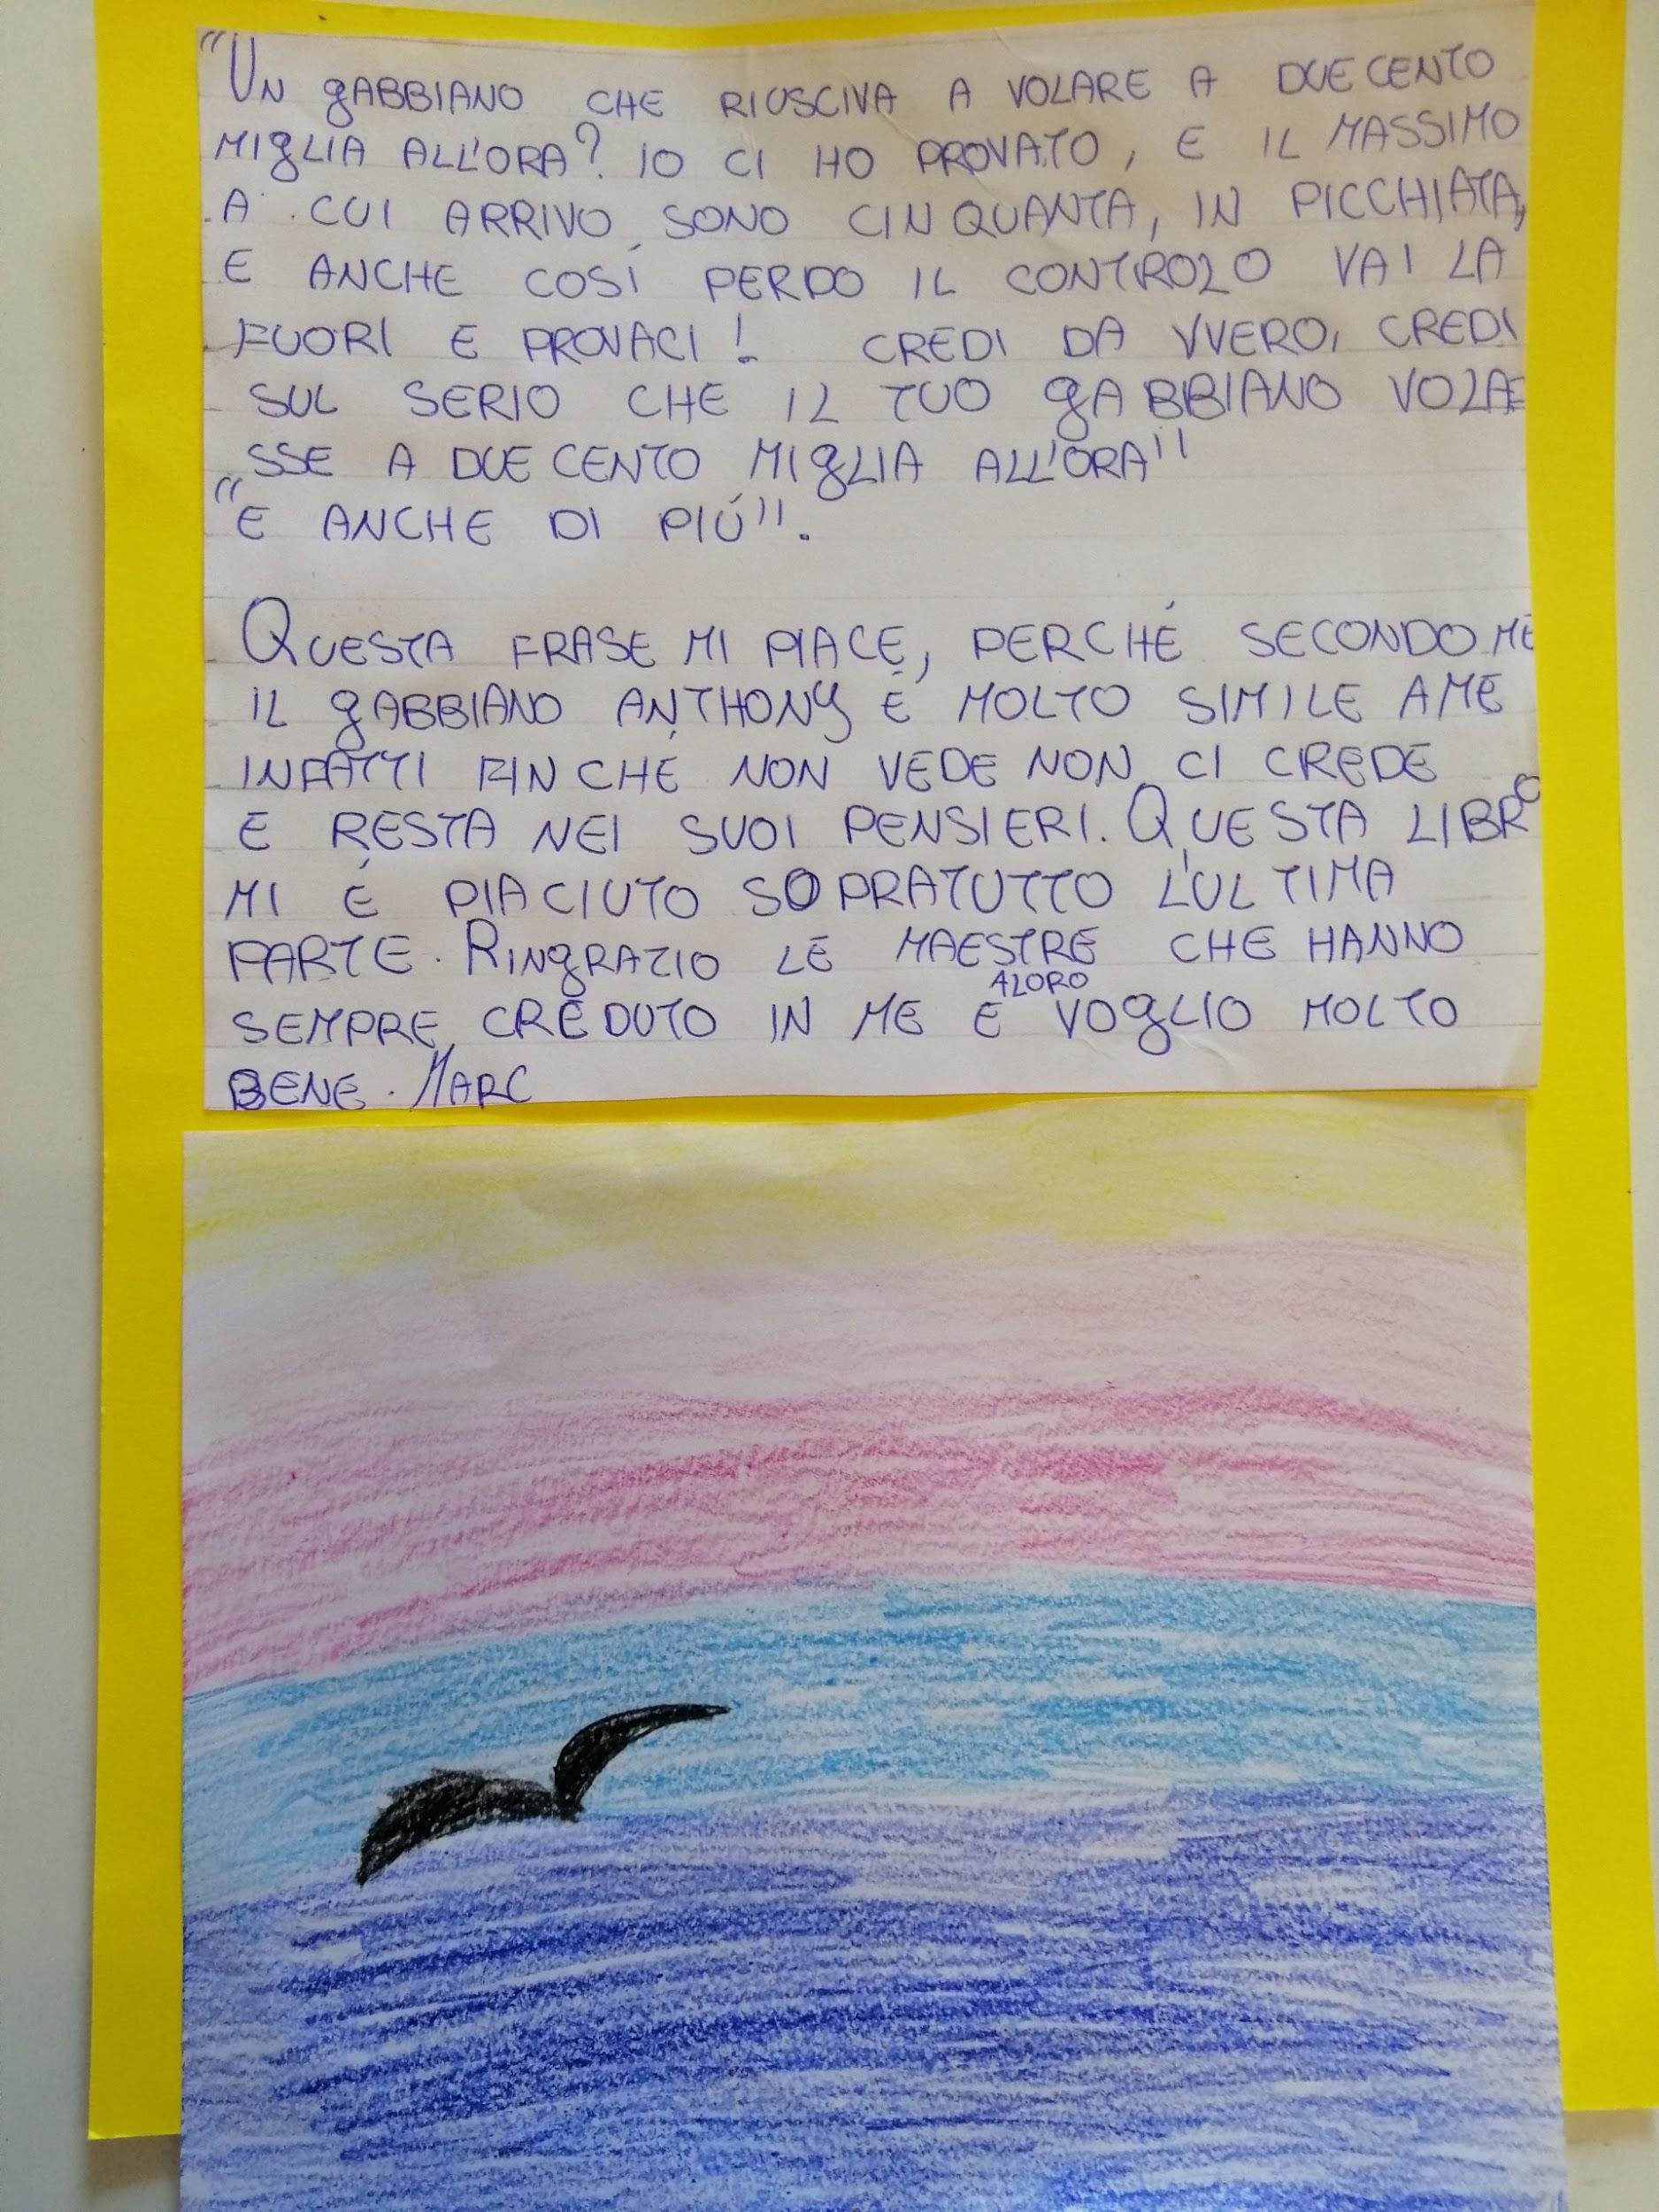 "UN gABBIANO CHE RIUSCIVA A VOLARE A DUE CENTO
MIgLIA ALL'ORA? IO CI HO PROVATO, E IL MASSIMO
A CUI ARRIVO SONO CINQUANTA, IN PICCHIATA,
E ANCHE COSÍ PERDO IL CONTROLO VAI LA
FUORI E PROVACI! CREDI DA VVERO, CREDI
SUL SERIO CHE IL TUO gABBIANO VOLA=
SSE A DUE CENTO MIgLIA ALL'ORA"
"E ANCHE DI PIÚ".
QUESTA FRASE MI PIACE, PERCHÉ SECONDO ME
IL gABBIANO ANTHONY É MOLTO SIMILE A ME
INFATTI FINCHÉ NON VEDE NON CI CREDE
E RESTA NEI SUOI PENSIERI. QUESTA LIBRO
MI É PIACIUTO SOPRATUTTO L'ULTIMA
PARTE. RINgRAZIO LE MAESTRE CHE HANNO
SEMPRE CREDUTO IN ME E A LORO VOgLIO MOLTO
BENE. MARC